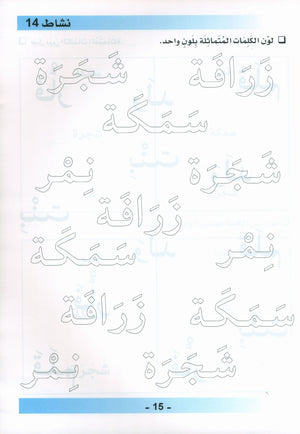 نشاط 14
❑ لوّن الكلمات المُتماثلة بِلَونٍ واحد.
زَرَافَة شَجَرَة
سَمَكَة
شَجَرَة نِمْر
زَرَافَة
نِمْر سَمَكَة
سَمَكَة زَرَافَة
شَجَرَة نِمْر
- 15 -